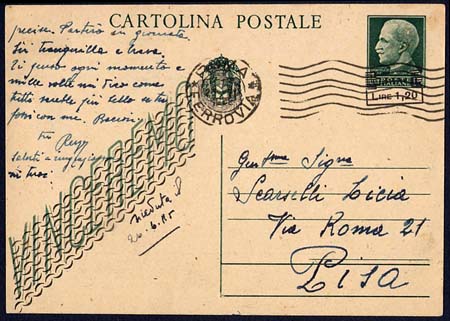 CARTOLINA POSTALE
precise. Partirò in giornata.
Sii tranquilla e brava.
Ti penso ogni momento e
mille volte mi dico come
tutto sarebbe più bello se tu
fossi con me. Bacioni
tuo
saluti a
VINCEREMO
PISA
FERROVIA
LIRE 1,20
Gent.ma Sig.na
Scarselli Licia
Via Roma 21
Pisa